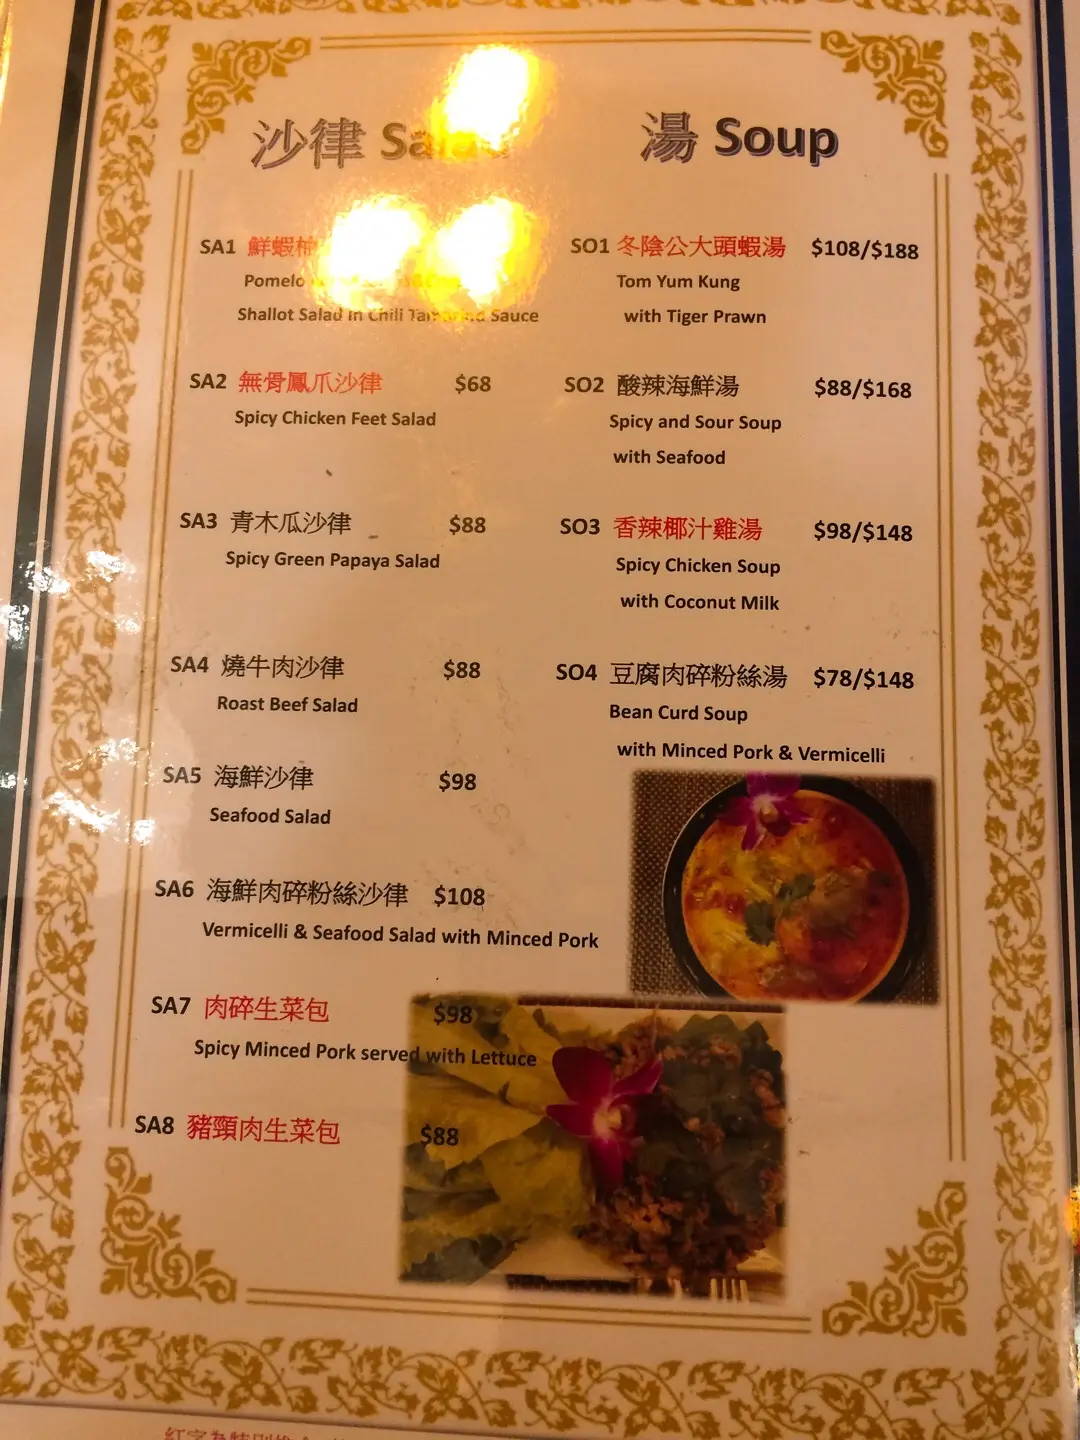 沙律
湯 Soup
SA1 鮮蝦柚
Pomelo
Shallot Salad in Chili Sauce
SA2 無骨鳳爪沙律 $68
Spicy Chicken Feet Salad
SA3 青木瓜沙律 $88
Spicy Green Papaya Salad
SA4 燒牛肉沙律 $88
Roast Beef Salad
SA5 海鮮沙律 $98
Seafood Salad
SA6 海鮮肉碎粉絲沙律 $108
Vermicelli & Seafood Salad with Minced Pork
SA7 肉碎生菜包 $98
Spicy Minced Pork served with Lettuce
SA8 豬頸肉生菜包 $88
SO1 冬陰公大頭蝦湯 $108/$188
Tom Yum Kung
with Tiger Prawn
SO2 酸辣海鮮湯 $88/$168
Spicy and Sour Soup
with Seafood
SO3 香辣椰汁雞湯 $98/$148
Spicy Chicken Soup
with Coconut Milk
SO4 豆腐肉碎粉絲湯 $78/$148
Bean Curd Soup
with Minced Pork & Vermicelli